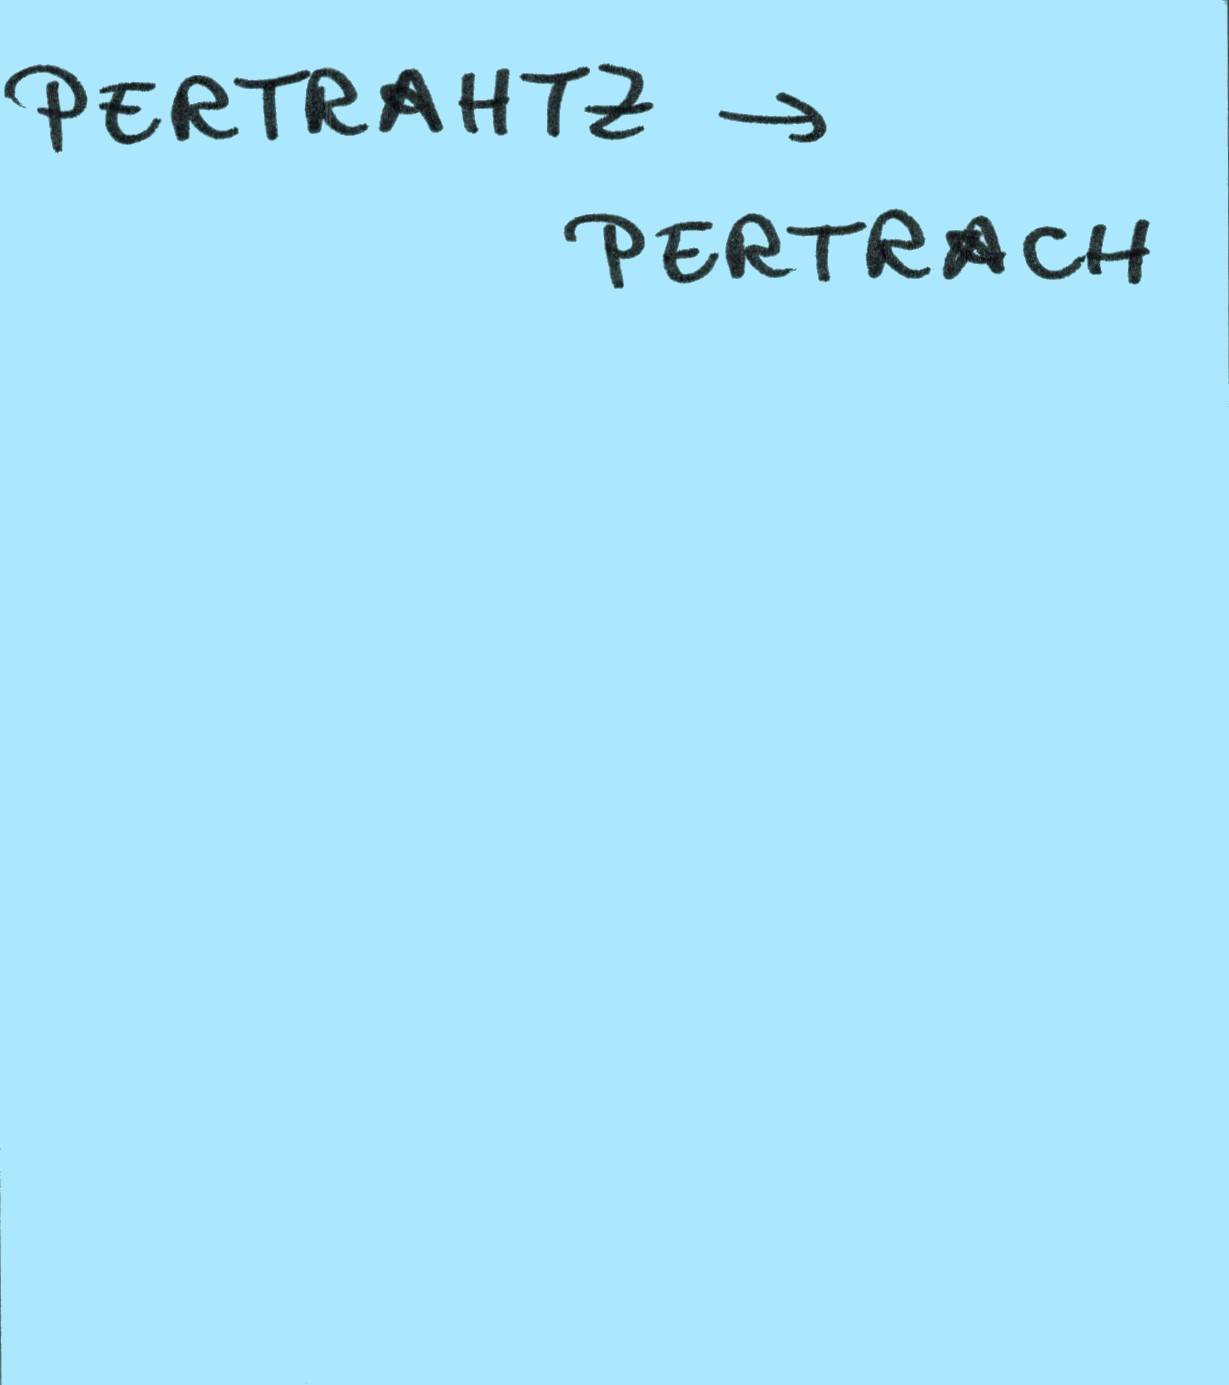 PERTRAHTZ →
PERTRACH